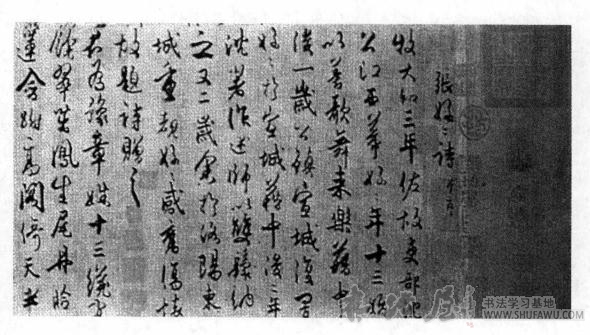 張好々詩 并序
牧大和三年佐故吏部沈
公江西幕好々年十三始
以善歌舞來樂籍中
後一歲公鎮宣城復置
好々於宣城籍中後二年
沈著作述師以雙鬟納
之又二歲余於洛陽東
城重覩好々感舊傷懷
故題詩贈之
君為豫章姝十三纔有
餘翠茁鳳生尾丹臉
蓮含跗高閣倚天半
书法学习基地
WWW.SHUFAWU.COM